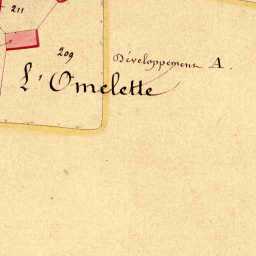 211
209
Développement A.
L'Omelette